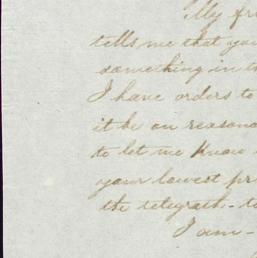 My fri
tells me that you
something in t
I have orders to
it be on reasona
to let me know
your lowest pr
the telegraph - t
I am -